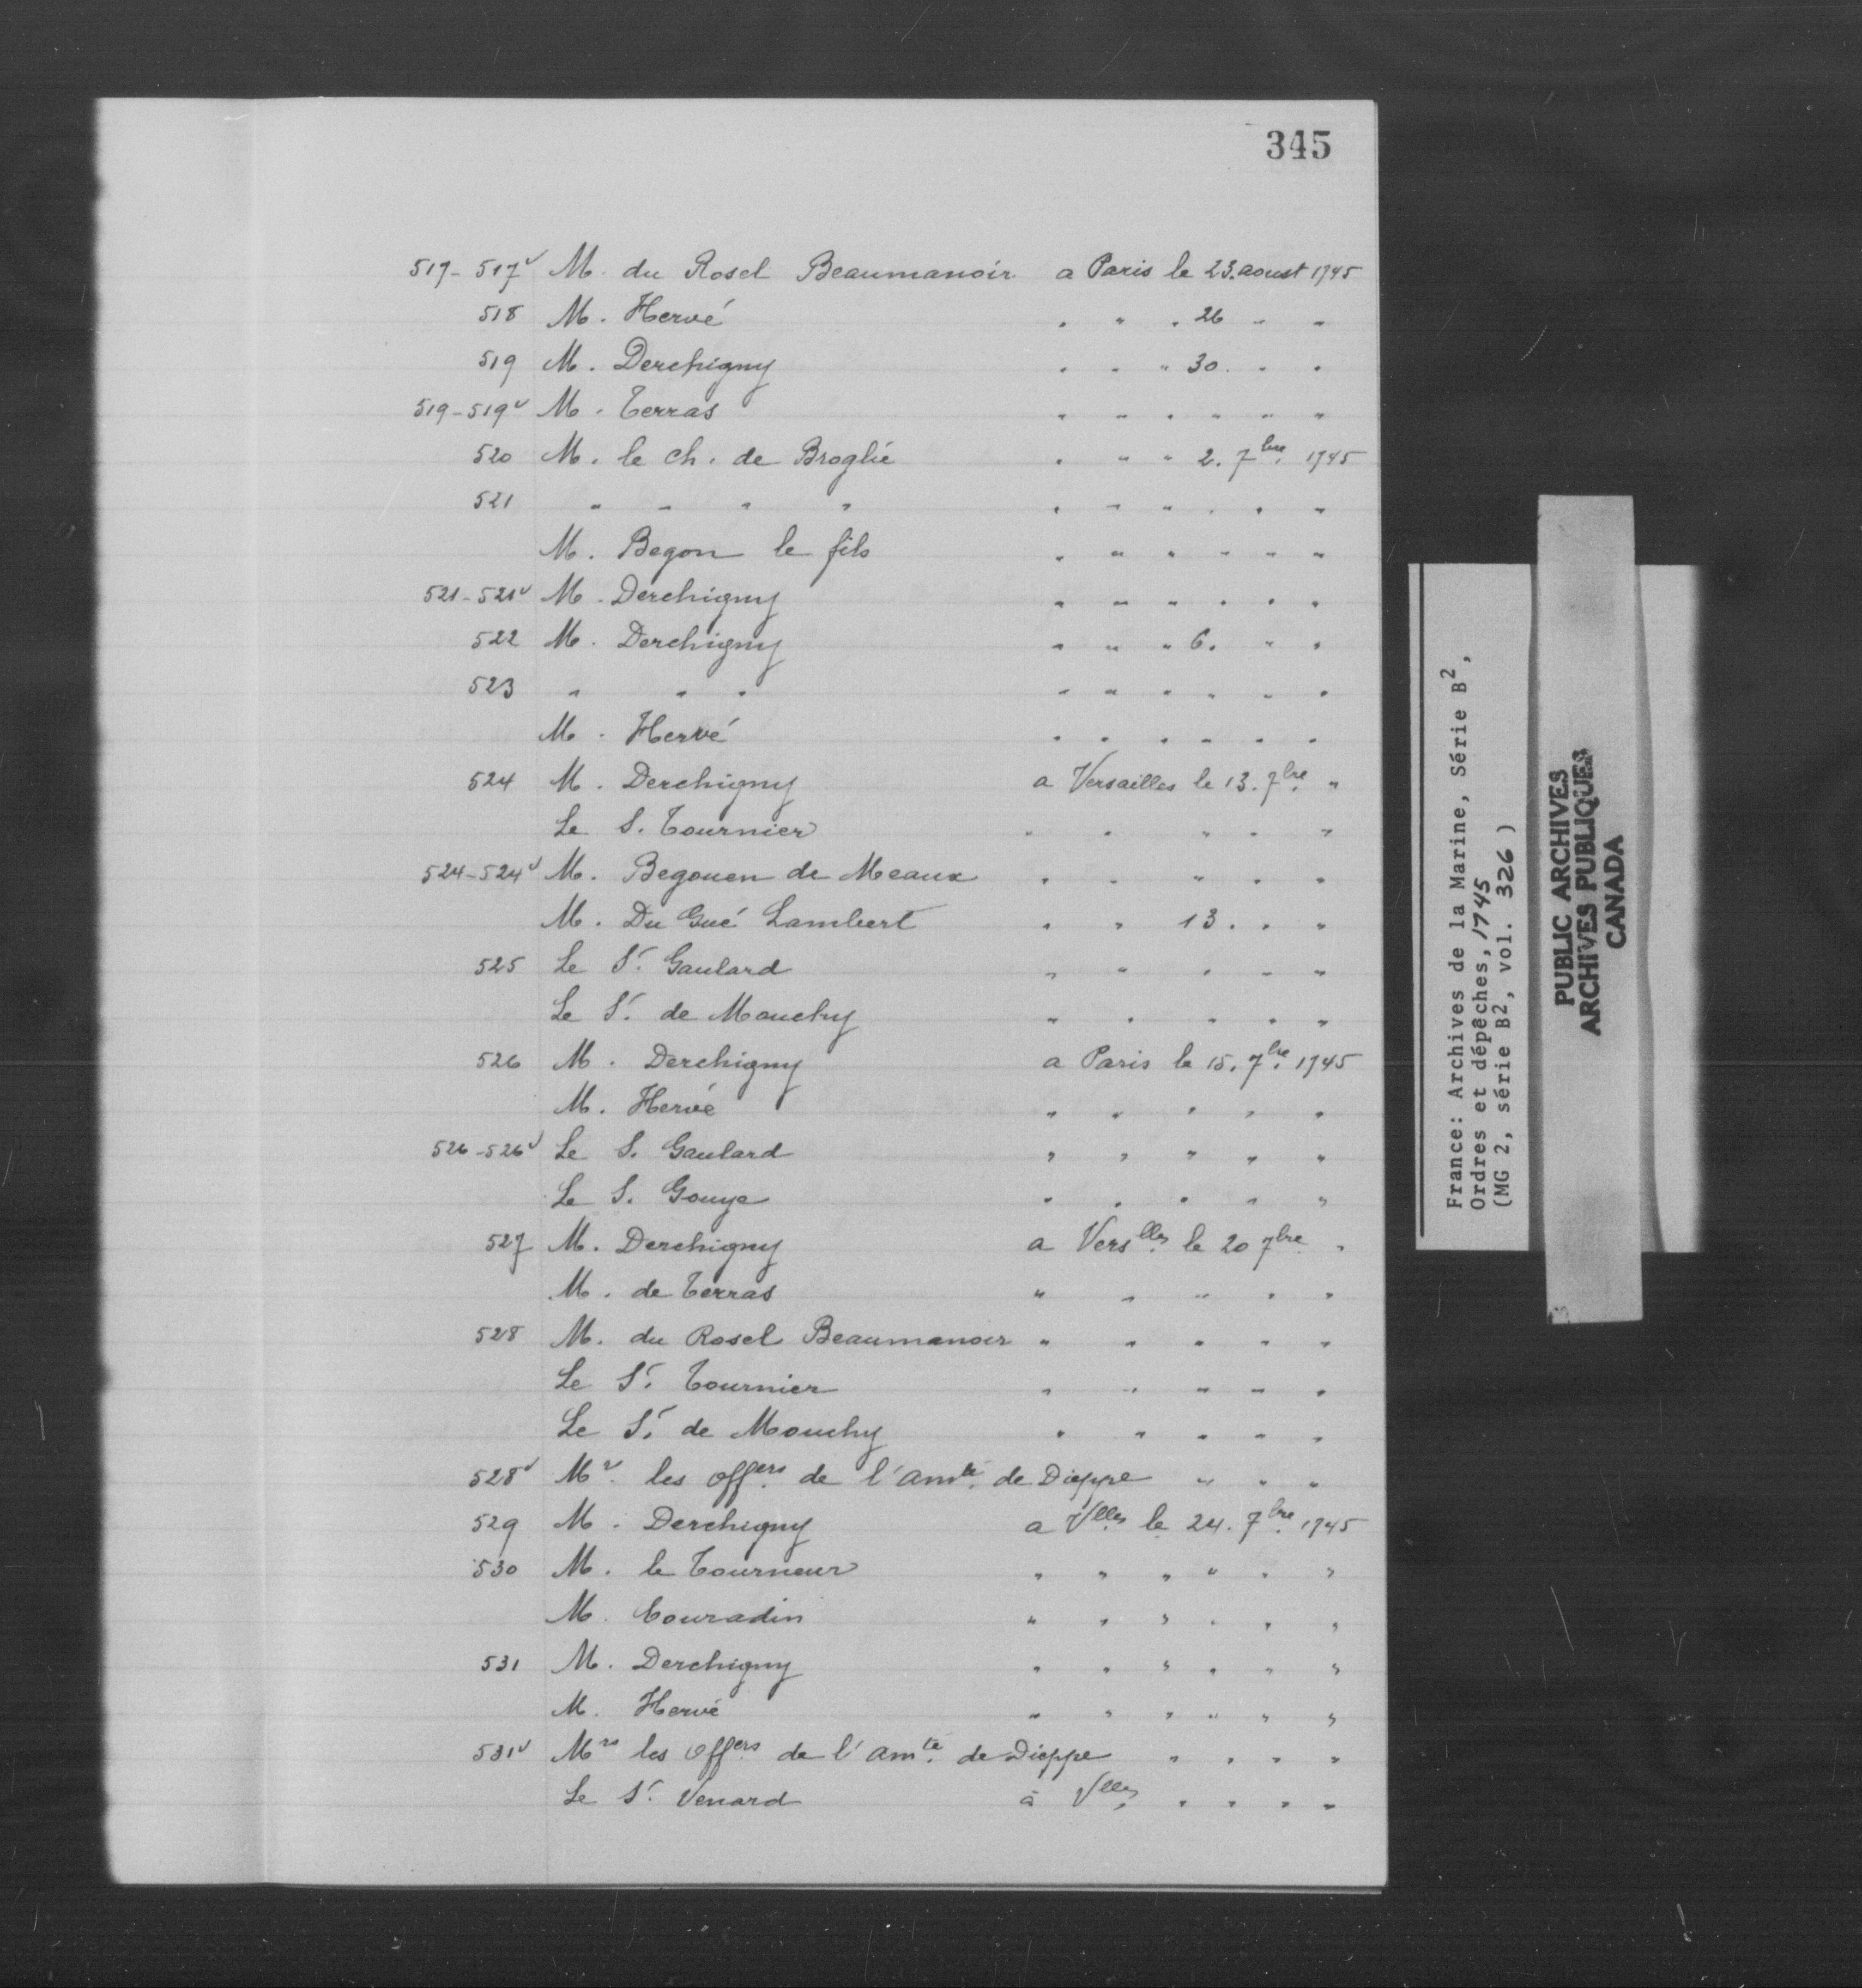 345
517-517v M. du Rosel Beaumanoir a Paris le 23. aoust 1745
518 M. Hervé " " " 26 " "
519 M. Derchigny " " " 30. " "
519-519v M. Terras " " " " " "
520 M. le ch. de Broglie " " " 2. 7bre 1745
521 " " " " " " " " " "
M. Begon le fils " " " " " "
521-521v M. Derchigny " " " " " "
522 M. Derchigny " " " 6. " "
523 " " " " " " " " "
M. Hervé " " " " " "
524 M. Derchigny a Versailles le 13. 7bre "
Le S. Tournier " " " " "
524-524v M. Begouen de Meaux " " " " "
M. Du Gué Lambert " " 13. " "
525 Le Sr. Gaulard " " " " "
Le Sr. de Mouchy " " " " "
526 M. Derchigny a Paris le 15. 7bre 1745
M. Hervé " " " " "
526-526v Le S. Gaulard " " " " "
Le S. Gouye " " " " "
527 M. Derchigny a Verslles le 20 7bre "
M. de Terras " " " " "
528 M. du Rosel Beaumanoir " " " " "
Le Sr. Tournier " " " " "
Le Sr. de Mouchy " " " " "
528v Mrs. les offers. de l'amté. de Dieppe " " "
529 M. Derchigny a Vlles le 24. 7bre 1745
530 M. le Tourneur " " " " " "
M. Couradin " " " " " "
531 M. Derchigny " " " " " "
M. Hervé " " " " " "
531v Mrs les Offers de l'amté. de Dieppe " " " "
Le Sr. Venard à Vlles " " " "
France: Archives de la Marine, Série B2,
Ordres et dépêches, 1745
(MG 2, série B2, vol. 326)
PUBLIC ARCHIVES
ARCHIVES PUBLIQUES
CANADA